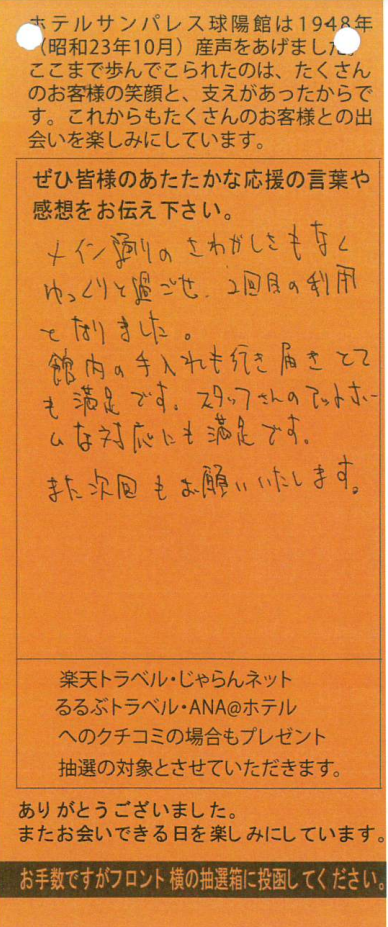 ホテルサンパレス球陽館は1948年
（昭和23年10月）産声をあげました。
ここまで歩んでこられたのは、たくさん
のお客様の笑顔と、支えがあったからで
す。これからもたくさんのお客様との出
会いを楽しみにしています。
ぜひ皆様のあたたかな応援の言葉や
感想をお伝え下さい。
メイン通りのさわがしさもなく
ゆっくりと過ごせ、2回目の利用
となりました。
館内の手入れも行き届きとて
も満足です。スタッフさんのアットホー
ムな対応にも満足です。
また次回もお願いいたします。
楽天トラベル・じゃらんネット
るるぶトラベル・ANA@ホテル
へのクチコミの場合もプレゼント
抽選の対象とさせていただきます。
ありがとうございました。
またお会いできる日を楽しみにしています。
お手数ですがフロント横の抽選箱に投函してください。